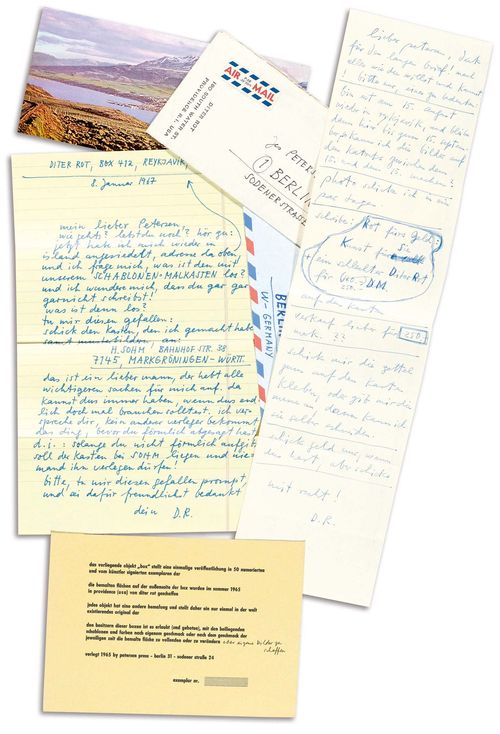 DITER ROT
180 SOUTH WATER ST.
PROVIDENCE R.I. USA
AIR MAIL
PETERSEN
1 BERLIN
SODENERSTRASSE
DITER ROT, BOX 412, REYKJAVIK,
8. Januar 1967
mein lieber Petersen,
wie gehts? lebst du wol? hör zu:
jetzt habe ich mich wieder in
island angesiedelt, adresse da oben
und ich frage mich, was ist den mit
unserem SCHABLONEN-MALKASTEN los?
und ich wundere mich, dass du gar gar
garnicht schreibst!
was ist denn los?
tu mir diesen gefallen:
schick den kasten, den ich gemacht habe
an:
H. SOHM BAHNHOFSTR. 38
7145, MARKGRÖNINGEN - WÜRTT.
das ist ein lieber mann, der hebt alle
wichtigeren sachen für mich auf. da
kannst du's immer haben, wenn du's end-
lich doch mal brauchen solltest. ich ver-
spreche dir, kein anderer verleger bekommt
das ding, bevor du förmlich abgesagt hast
d.i.: solange du nicht förmlich aufgibst
soll der kasten bei SOHM liegen und nie-
mand ihn verlegen dürfen!
bitte, tu mir diesen gefallen prompt,
und sei dafür freundlichst bedankt
dein D.R.
BERLIN
W-GERMANY
lieber petersen, dank
für den langen brief!
bin am 15. august
wieder in reykjavik und bleibe
dann hier bis zum 15. september
photo schicke ich in ein
paar tagen
schreibe: Rot fürs Geld:
Kunst für Sie
ein selbstler Diter Rot
für 250.- D.M.
auf den kasten
250.
schick mir die zettel
zum auf den kasten
kleben, oder gib mir die
schick geld mir, wenn
du hast,
mit recht!
D.R.
das vorliegende objekt „box" stellt eine einmalige veröffentlichung in 50 numerierten
und vom künstler signierten exemplaren dar
die bemalten flächen auf der außenseite der box wurden im sommer 1965
in providence (usa) von diter rot geschaffen
jedes objekt hat eine andere bemalung und stellt daher ein nur einmal in der welt
existierendes original dar
den besitzern dieser boxen ist es erlaubt (und geboten), mit den beiliegenden
schablonen und farben nach eigenem geschmack oder nach dem geschmack der
jeweiligen zeit die bemalte fläche zu vollenden oder zu verändern oder eigene bilder zu
schaffen
verlegt 1965 by petersen press - berlin 31 - sodener straße 24
exemplar nr.